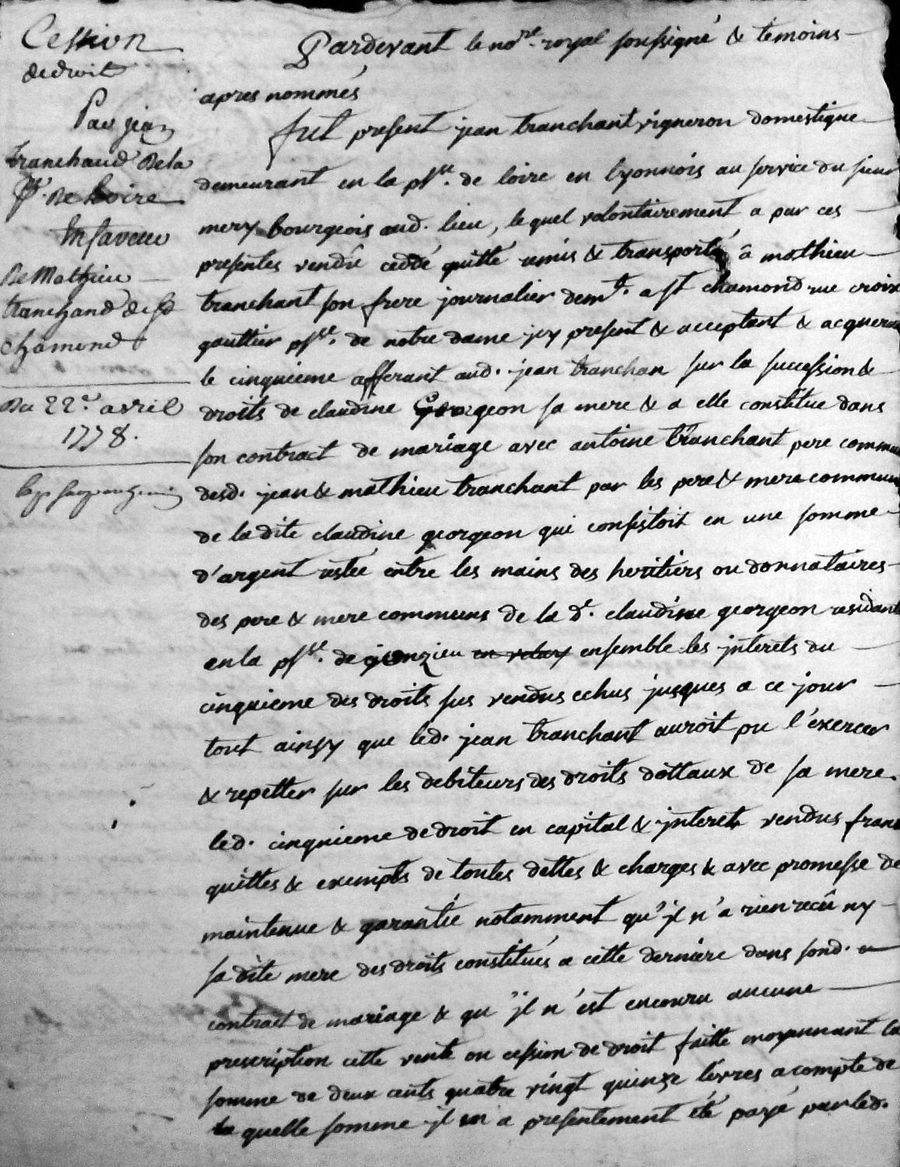 Cession
de droit
Par jean
tranchand de la
psse. de Loire
En faveur
de Mathieu
tranchand de st
chamond
Du 22e. avril
1778.
Pardevant le nore. royal soussigné & temoins
apres nommés
fut present jean tranchant vigneron domestique
demeurant en la psse. de loire en lyonnois au service du sieur
mery bourgeois aud. lieu, lequel volontairement a par ces
presentes vendu cedé quitté remis & transporté à mathieu
tranchant son frere journalier demt. a st chamond rue croix
gauttier psse. de notre dame jcy present & acceptant & acquereur
le cinquieme afferant aud. jean tranchan sur la succession &
droits de claudine Georgeon sa mere & a elle constitue dans
son contract de mariage avec antoine tranchant pere commun
desd. jean & mathieu tranchant par les pere & mere communs
de la dite claudine georgeon qui consistoit en une somme
d'argent restée entre les mains des heritiers ou donnataires
des pere & mere communs de la de. claudine georgeon residant
en la psse. de en velay ensemble les jnterets du
cinquieme des droits sus vendus echus jusques a ce jour
tout ainsy que led. jean tranchant auroit pu l'exercer
& repetter sur les debiteurs des droits dottaux de sa mere.
led. cinquieme de droit en capital & jnterets vendus francs
quittes & exempts de toutes dettes & charges & avec promesse de
maintenue & garantie notamment qu'jl n'a rien recû ny
sa dite mere des droits constitués a cette derniere dans sond.
contract de mariage & qu'jl n'est encouru aucune
prescription cette vente ou cession de droit faitte moyennant la
somme de deux cents quatre vingt quinze livres a compte de
la quelle somme jl en a presentement été payé par led.